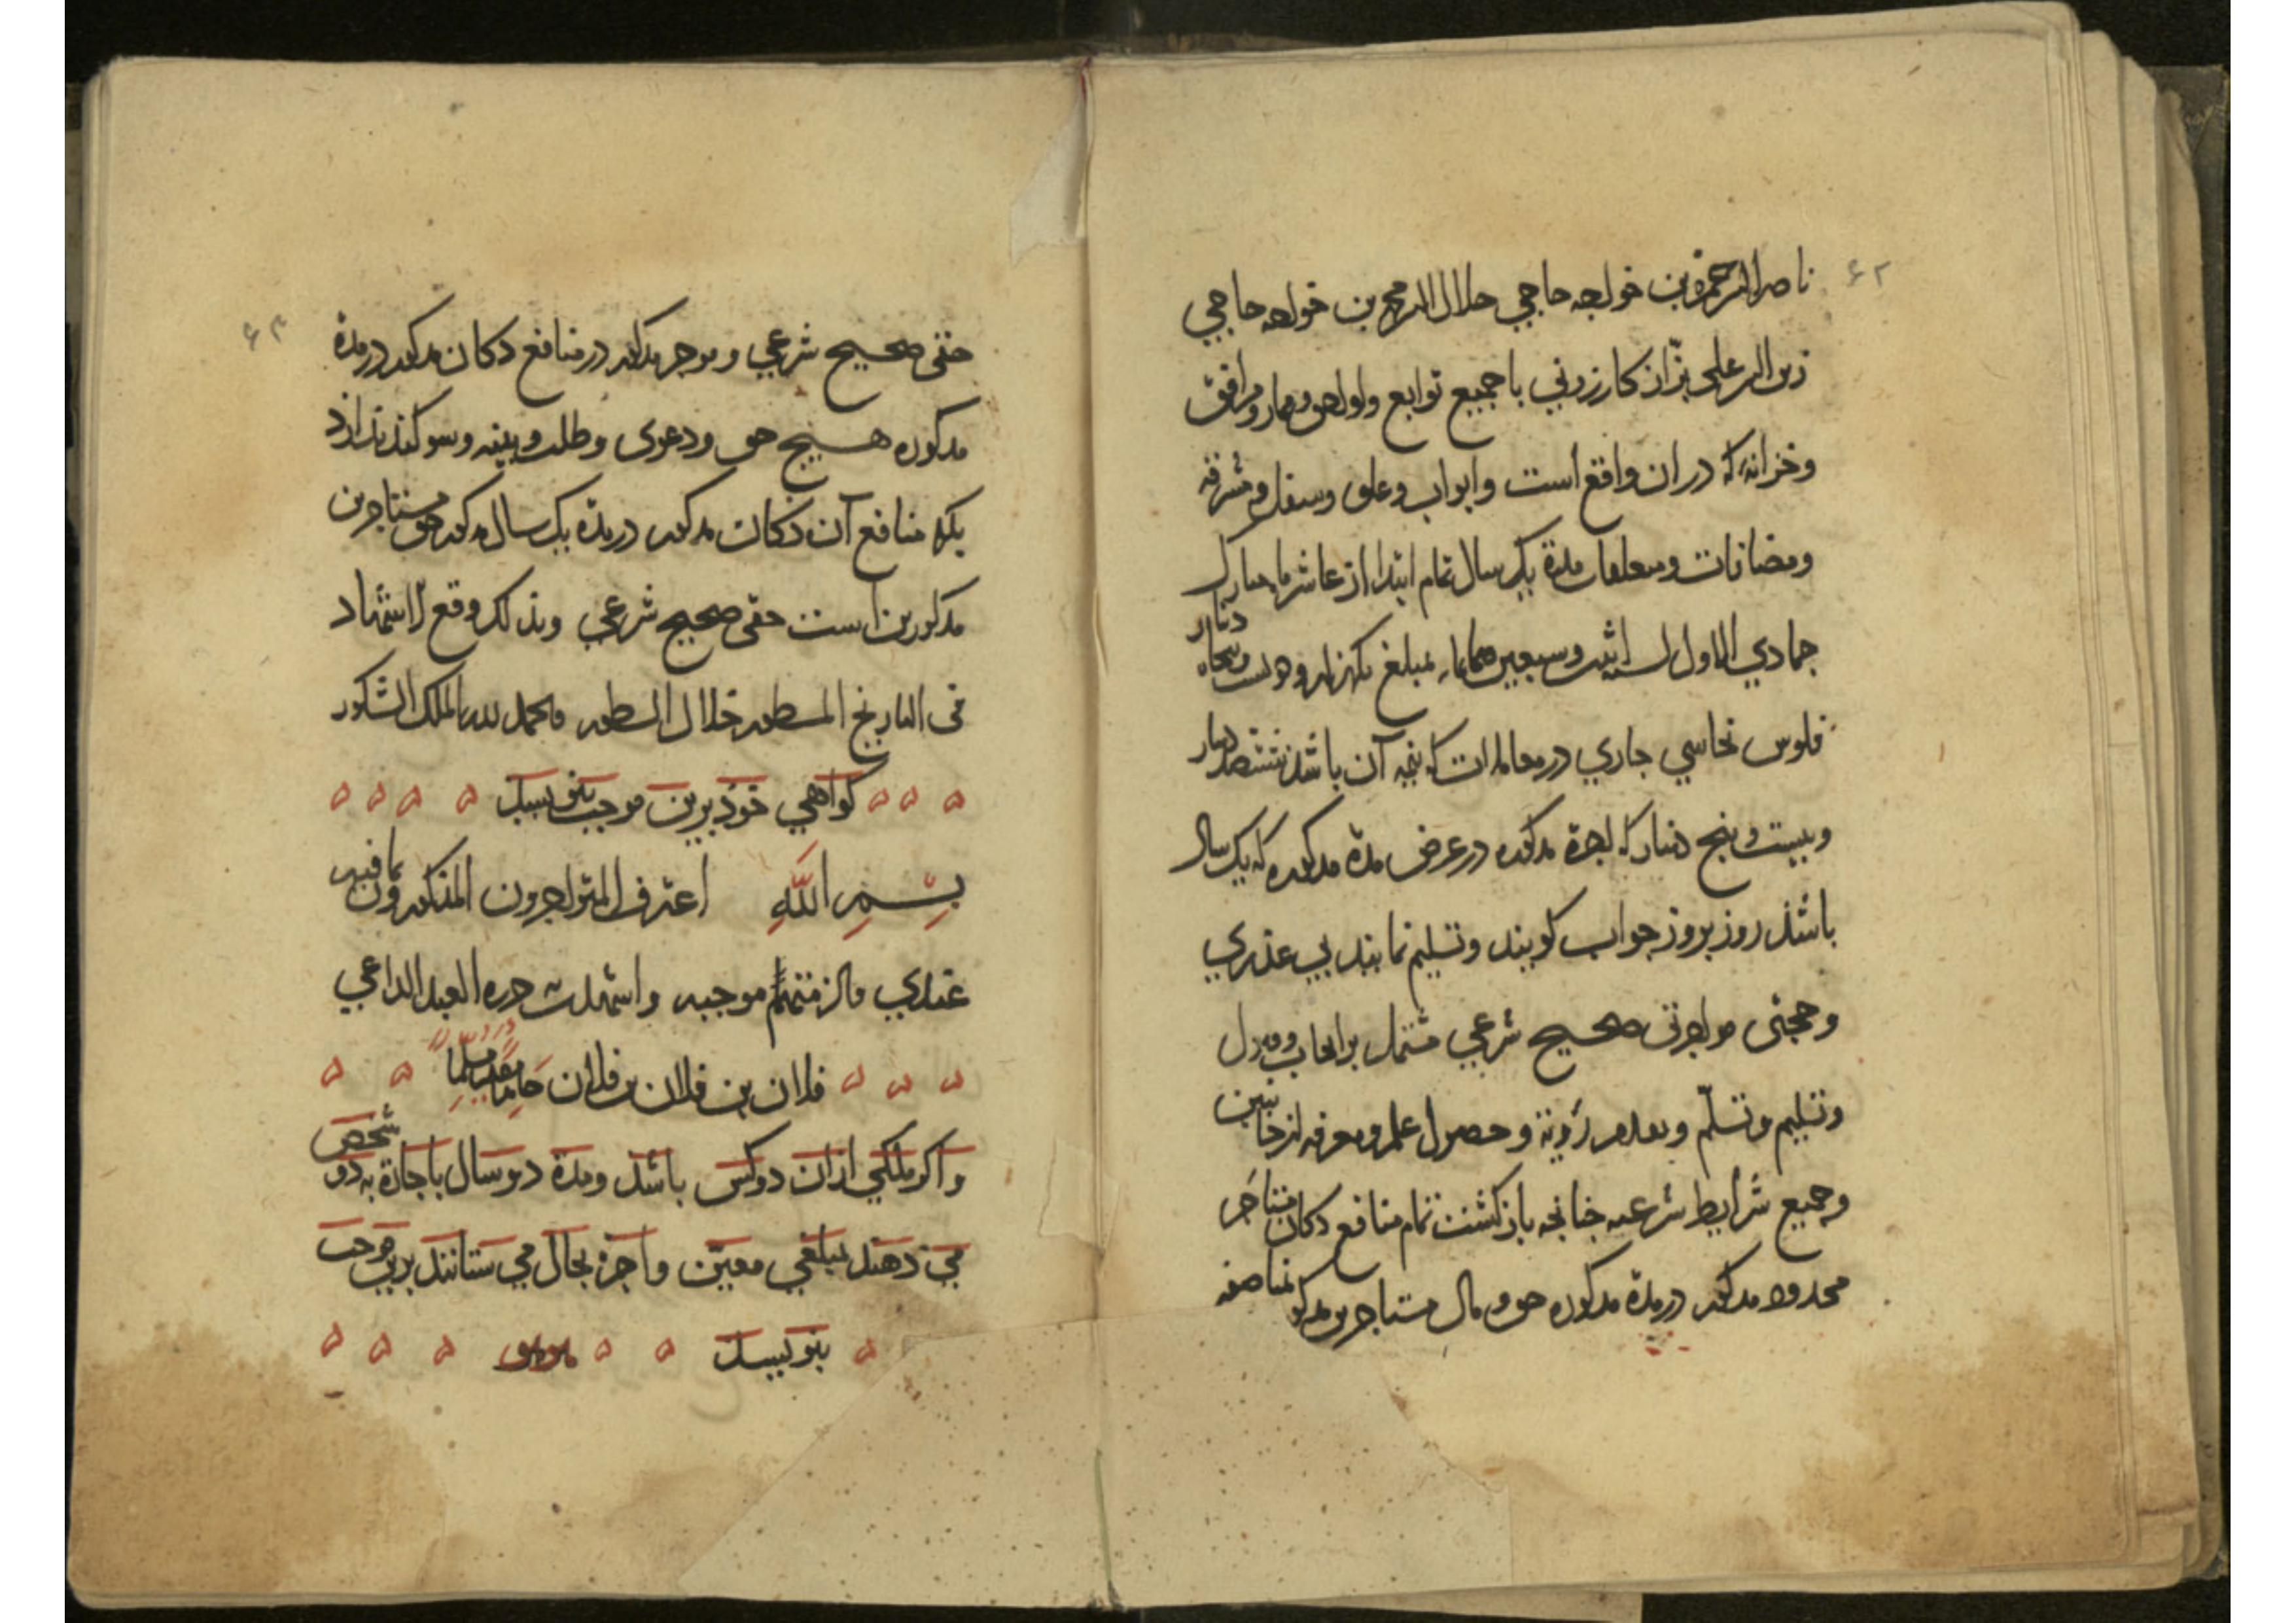 ۶۲
ناصر الدین حمزة بن خواجه حاجی جلال الدین محمد بن خواجه حاجی
زین الدین علی بزّاز کازرونی با جمیع توابع ولواحق وممار ومرافق
وخزانه که در ان واقع است وابواب وعلو وسفل ومشرفه
ومضافات ومتعلقات مدة یک سال تمام ابتدا از عاشر ماه مبارک
جمادی الاول لسنة اثنین وسبعین وثمانمایه بمبلغ یکهزار ودویست وپنجاه دینار
فلوس نحاسی جاری در معاملات که نیمه آن باشد ششصد دینار
وبیست وپنج دینار که اجرة مذکوره در عرض مدة مذکوره که یک سال
باشد روز بروز جواب کویند وتسلیم نمایند بی عذری
وحجتی مواجرتی صحیح شرعی مشتمل بر ایجاب وقبول
وتسلیم وتسلّم وبعد از رؤیة وحصول علم ومعرفه از جانبین
وجمیع شرایط شرعیه چنانچه بازکشت تمام منافع دکان مستاجر
محدود مذکور در مدة مذکوره حق ومال مستاجرین مذکور مناصفه
۶۳
حقی صحیح شرعی وموجر مذکور در منافع دکان مذکور در مدة
مذکوره هیچ حق ودعوی وطلب وبینه وسوکند ندارد
بلکه منافع آن دکان مذکور در مدة یک سال مذکور حق مستاجرین
مذکورین است حقی صحیح شرعی وبذلک وقع الاشهاد
فی التاریخ المسطور خلال السطور والحمد لله الملک الشکور
کواهی خود برین موجب بنویسد
بسم الله اعترف المتواجرون المذکورون بما فیه
عندی والزمتهم موجبه واشهدت حرره العبد الداعی
فلان بن فلان بن فلان حامدا مصلیا مسلما
واکر ملکی از ان دوکس باشد ومدة دو سال باجارة به دو شخص
می دهند بمبلغی معین واجرة بحال می ستانند برین موجب
بنویسد